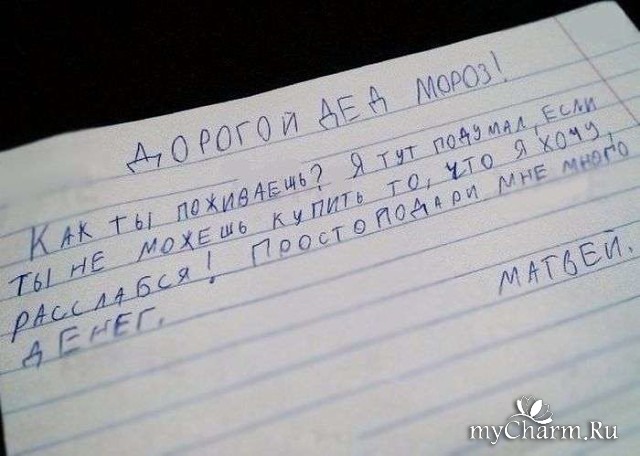 ДОРОГОЙ ДЕД МОРОЗ!
КАК ТЫ ПОЖИВАЕШЬ? Я ТУТ ПОДУМАЛ, ЕСЛИ
ТЫ НЕ МОЖЕШЬ КУПИТЬ ТО, ЧТО Я ХОЧУ,
РАССЛАБСЯ! ПРОСТО ПОДАРИ МНЕ МНОГО
ДЕНЕГ.
МАТВЕЙ.
myCharm.Ru